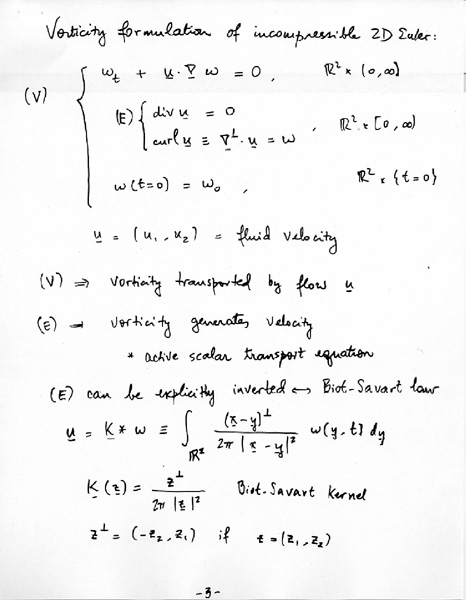 Vorticity formulation of incompressible 2D Euler:
(V) { ω_t + u·∇ ω = 0 , ℝ² × (0,∞)
(E) { div u = 0
curl u ≡ ∇^⊥·u = ω , ℝ² × [0,∞)
ω(t=0) = ω₀ , ℝ² × {t=0}
u = (u₁, u₂) = fluid velocity
(V) ⇒ vorticity transported by flow u
(E) → vorticity generates velocity
* active scalar transport equation
(E) can be explicitly inverted ↔ Biot-Savart law
u = K * ω ≡ ∫_ℝ² (x-y)^⊥ / 2π |x-y|² ω(y,t) dy
K(z) = z^⊥ / 2π |z|² Biot-Savart Kernel
z^⊥ = (-z₂, z₁) if z = (z₁, z₂)
-3-